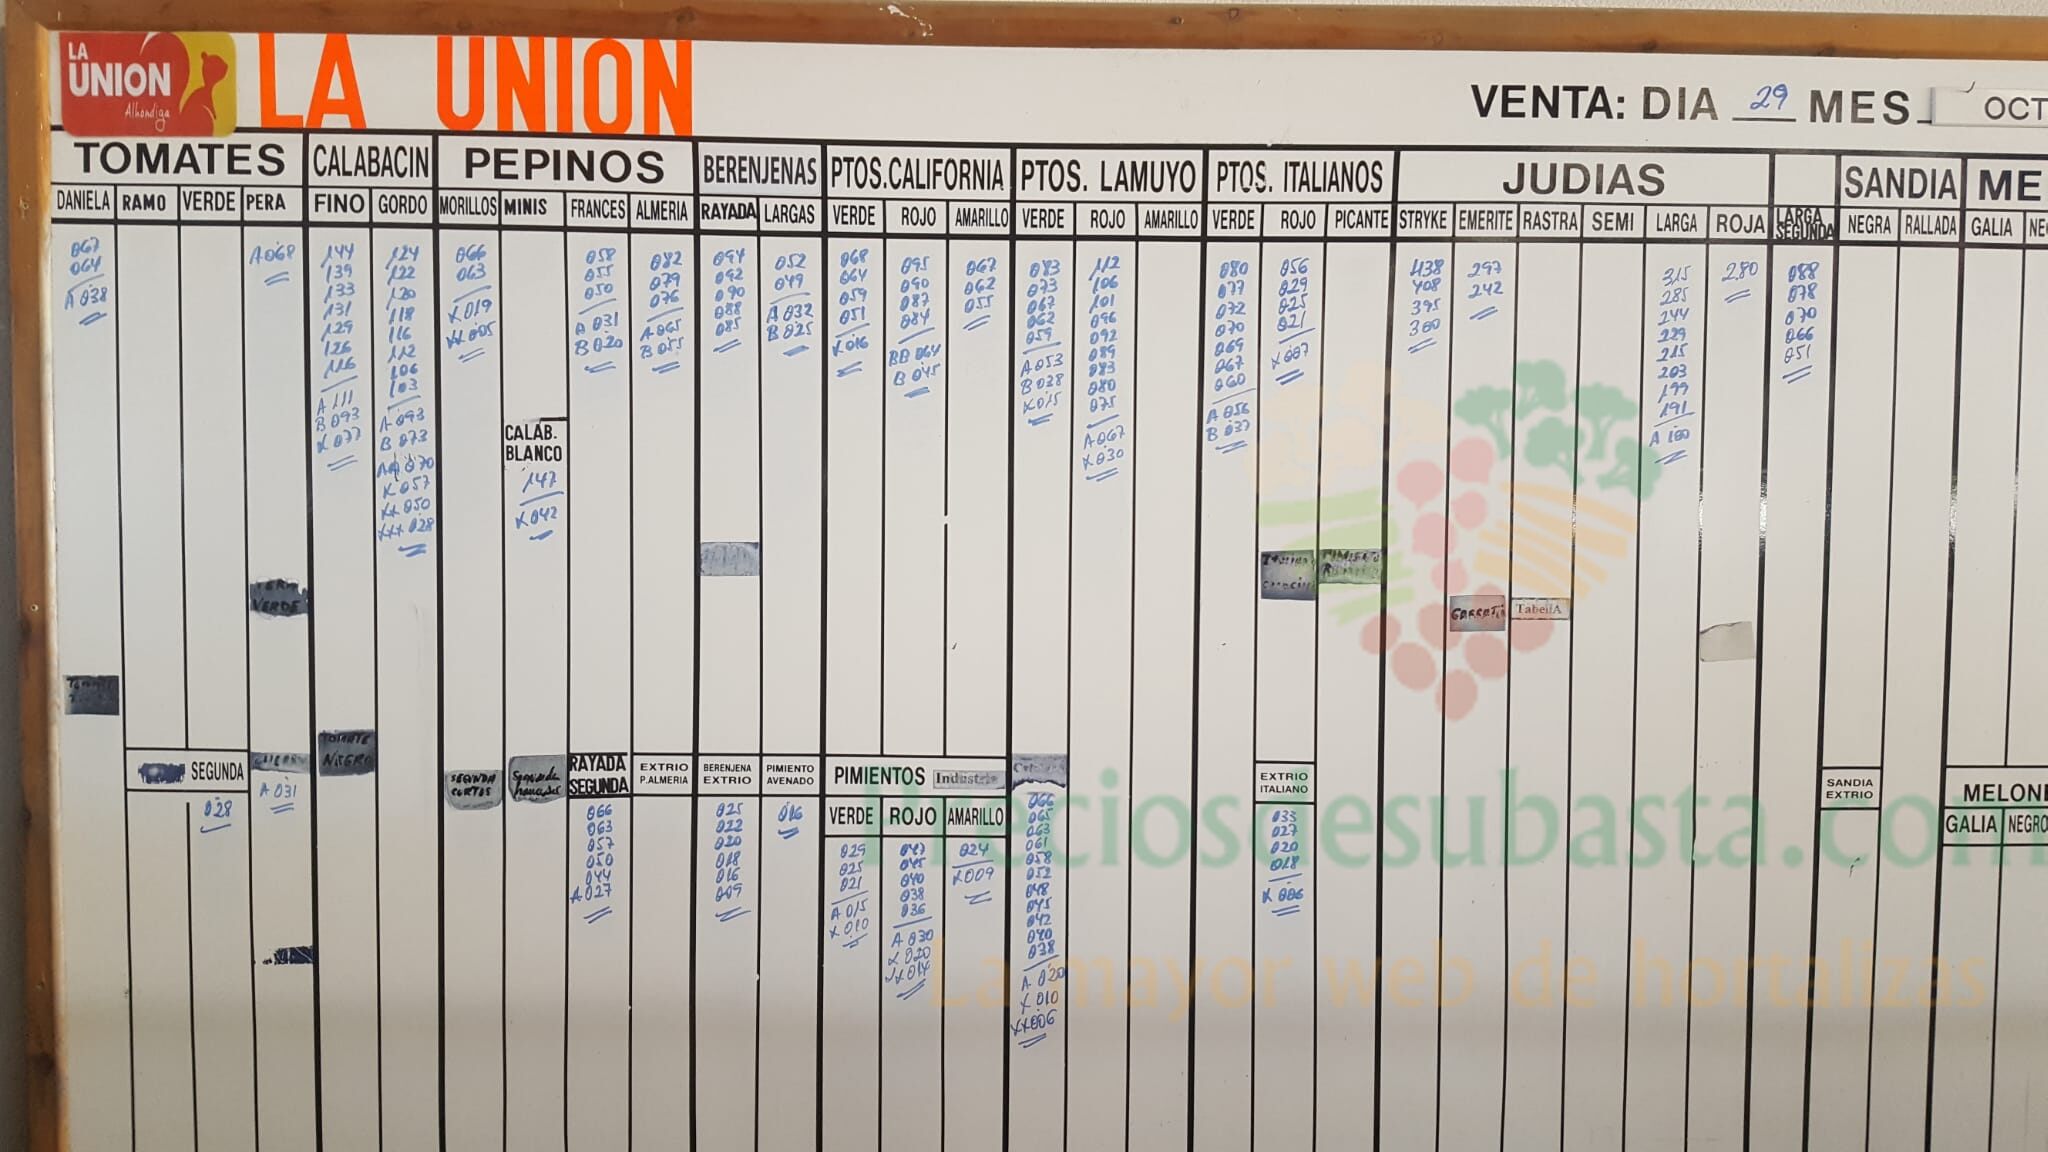 LA
UNION
Alhondiga
LA UNION
VENTA: DIA 29 MES OCT
TOMATES CALABACIN PEPINOS BERENJENAS PTOS.CALIFORNIA PTOS. LAMUYO PTOS. ITALIANOS JUDIAS SANDIA ME
DANIELA RAMO VERDE PERA FINO GORDO MORILLOS MINIS FRANCES ALMERIA RAYADA LARGAS VERDE ROJO AMARILLO VERDE ROJO AMARILLO VERDE ROJO PICANTE STRYKE EMERITE RASTRA SEMI LARGA ROJA LARGA SEGUNDA NEGRA RALLADA GALIA NE
067
064
A 038
A068
144
139
133
131
129
126
116
A 111
B 093
X 077
124
122
120
118
116
112
106
103
A 093
B 073
AA 070
X 057
XX 050
XXX 028
066
063
X 019
XX 005
CALAB.
BLANCO
147
X042
058
055
050
A 031
B 020
082
079
076
A 065
B 055
094
092
090
088
085
052
049
A 032
B 025
068
064
059
051
X 016
095
090
087
084
BB 064
B 045
067
062
055
083
073
067
062
059
A 053
B 038
X 015
112
106
101
096
092
089
083
080
075
A 067
X 030
080
077
072
070
069
067
060
A 056
B 037
056
029
025
021
X 007
438
408
395
380
297
242
315
285
244
229
215
203
199
191
A 180
280
088
078
070
066
051
VERDE
TabellA
SEGUNDA
028
A 031
TOMATE
NEGRO
SEGUNDA
CORTOS
Segunda
frances
RAYADA
SEGUNDA
066
063
057
050
044
A 027
EXTRIO
P.ALMERIA
BERENJENA
EXTRIO
025
022
020
018
016
009
PIMIENTO
AVENADO
016
PIMIENTOS Industria
VERDE ROJO AMARILLO
029
025
021
A 015
X 010
047
045
040
038
036
A 030
X 020
XX 014
024
X009
066
065
063
061
058
052
048
045
042
040
038
A 020
X 010
XX006
EXTRIO
ITALIANO
033
027
020
018
X 006
SANDIA
EXTRIO
MELONE
GALIA NEGRO
Preciosdesubasta.com
La mayor web de hortalizas